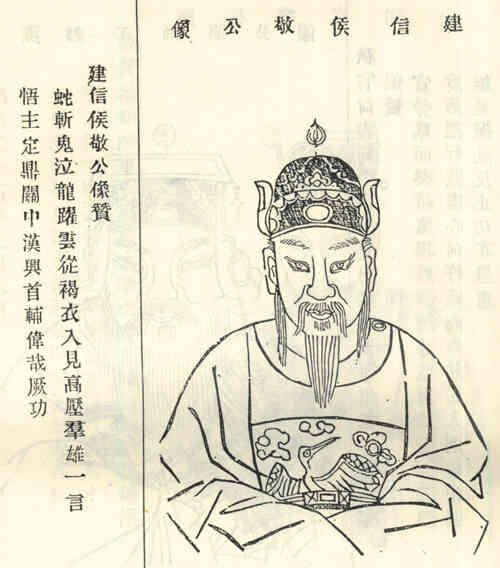 建信侯敬公像
建信侯敬公像贊
虵斬鬼泣龍躍雲從褐衣入見高壓羣雄一言
悟主定鼎關中漢興首輔偉哉厥功